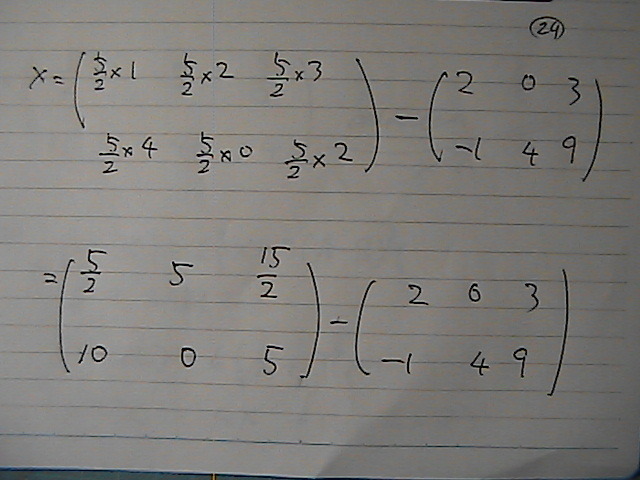 24
x = ( 5/2 × 1 5/2 × 2 5/2 × 3
5/2 × 4 5/2 × 0 5/2 × 2 ) − ( 2 0 3
-1 4 9 )
= ( 5/2 5 15/2
10 0 5 ) − ( 2 0 3
-1 4 9 )